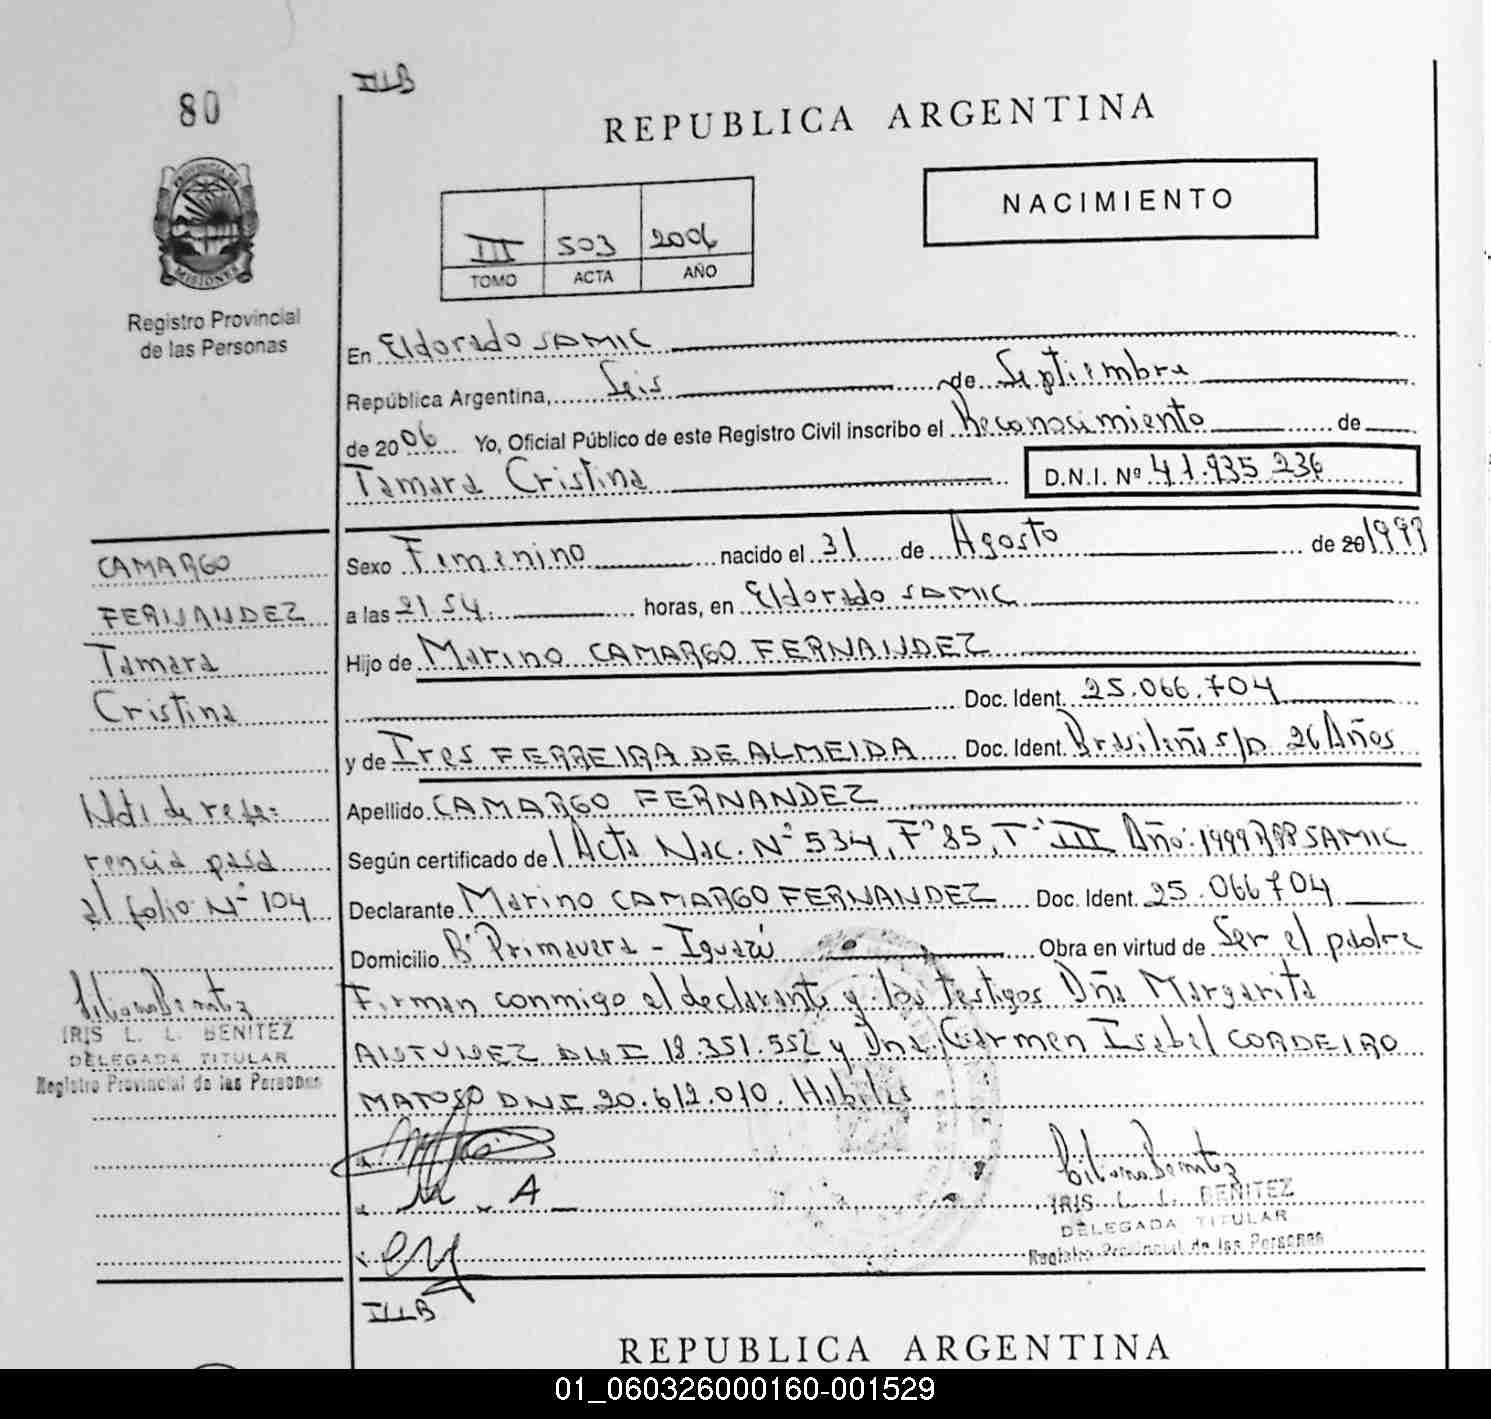 80
ILLB
REPUBLICA ARGENTINA
NACIMIENTO
III 503 2006
TOMO ACTA AÑO
PROVINCIA DE
MISIONES
Registro Provincial
de las Personas
En Eldorado SAMIC
República Argentina, Seis de Septiembre
de 2006 Yo, Oficial Público de este Registro Civil inscribo el Reconocimiento de
Tamara Cristina D.N.I. Nº 41.935.236
Sexo Femenino nacido el 31 de Agosto de 20 1999
a las 21.54. horas, en Eldorado SAMIC
Hijo de Marino CAMARGO FERNANDEZ
Doc. Ident. 25.066.704
y de Ires FERREIRA DE ALMEIDA Doc. Ident. Brasileña s/D 26 Años
Apellido CAMARGO FERNANDEZ
Según certificado de Acta Nac. Nº 534, Fº 85, Tº III Año: 1999 SAMIC
Declarante Marino CAMARGO FERNANDEZ Doc. Ident. 25.066704
Domicilio Bº Primavera - Iguazú Obra en virtud de Ser el padre
Firman conmigo el declarante y los testigos Dña Margarita
ANTUNEZ DNI 18.351.552 y Dna. Carmen Isabel CORDEIRO
MATOSO DNI 20.612.010. Hábiles
CAMARGO
FERNANDEZ
Tamara
Cristina
Nota de refe=
rencia pasa
al folio Nº 104
IRIS L. L. BENITEZ
DELEGADA TITULAR
Registro Provincial de las Personas
M. A
IRIS L. L. BENITEZ
DELEGADA TITULAR
Registro Provincial de las Personas
ILLB
REPUBLICA ARGENTINA
01_060326000160-001529